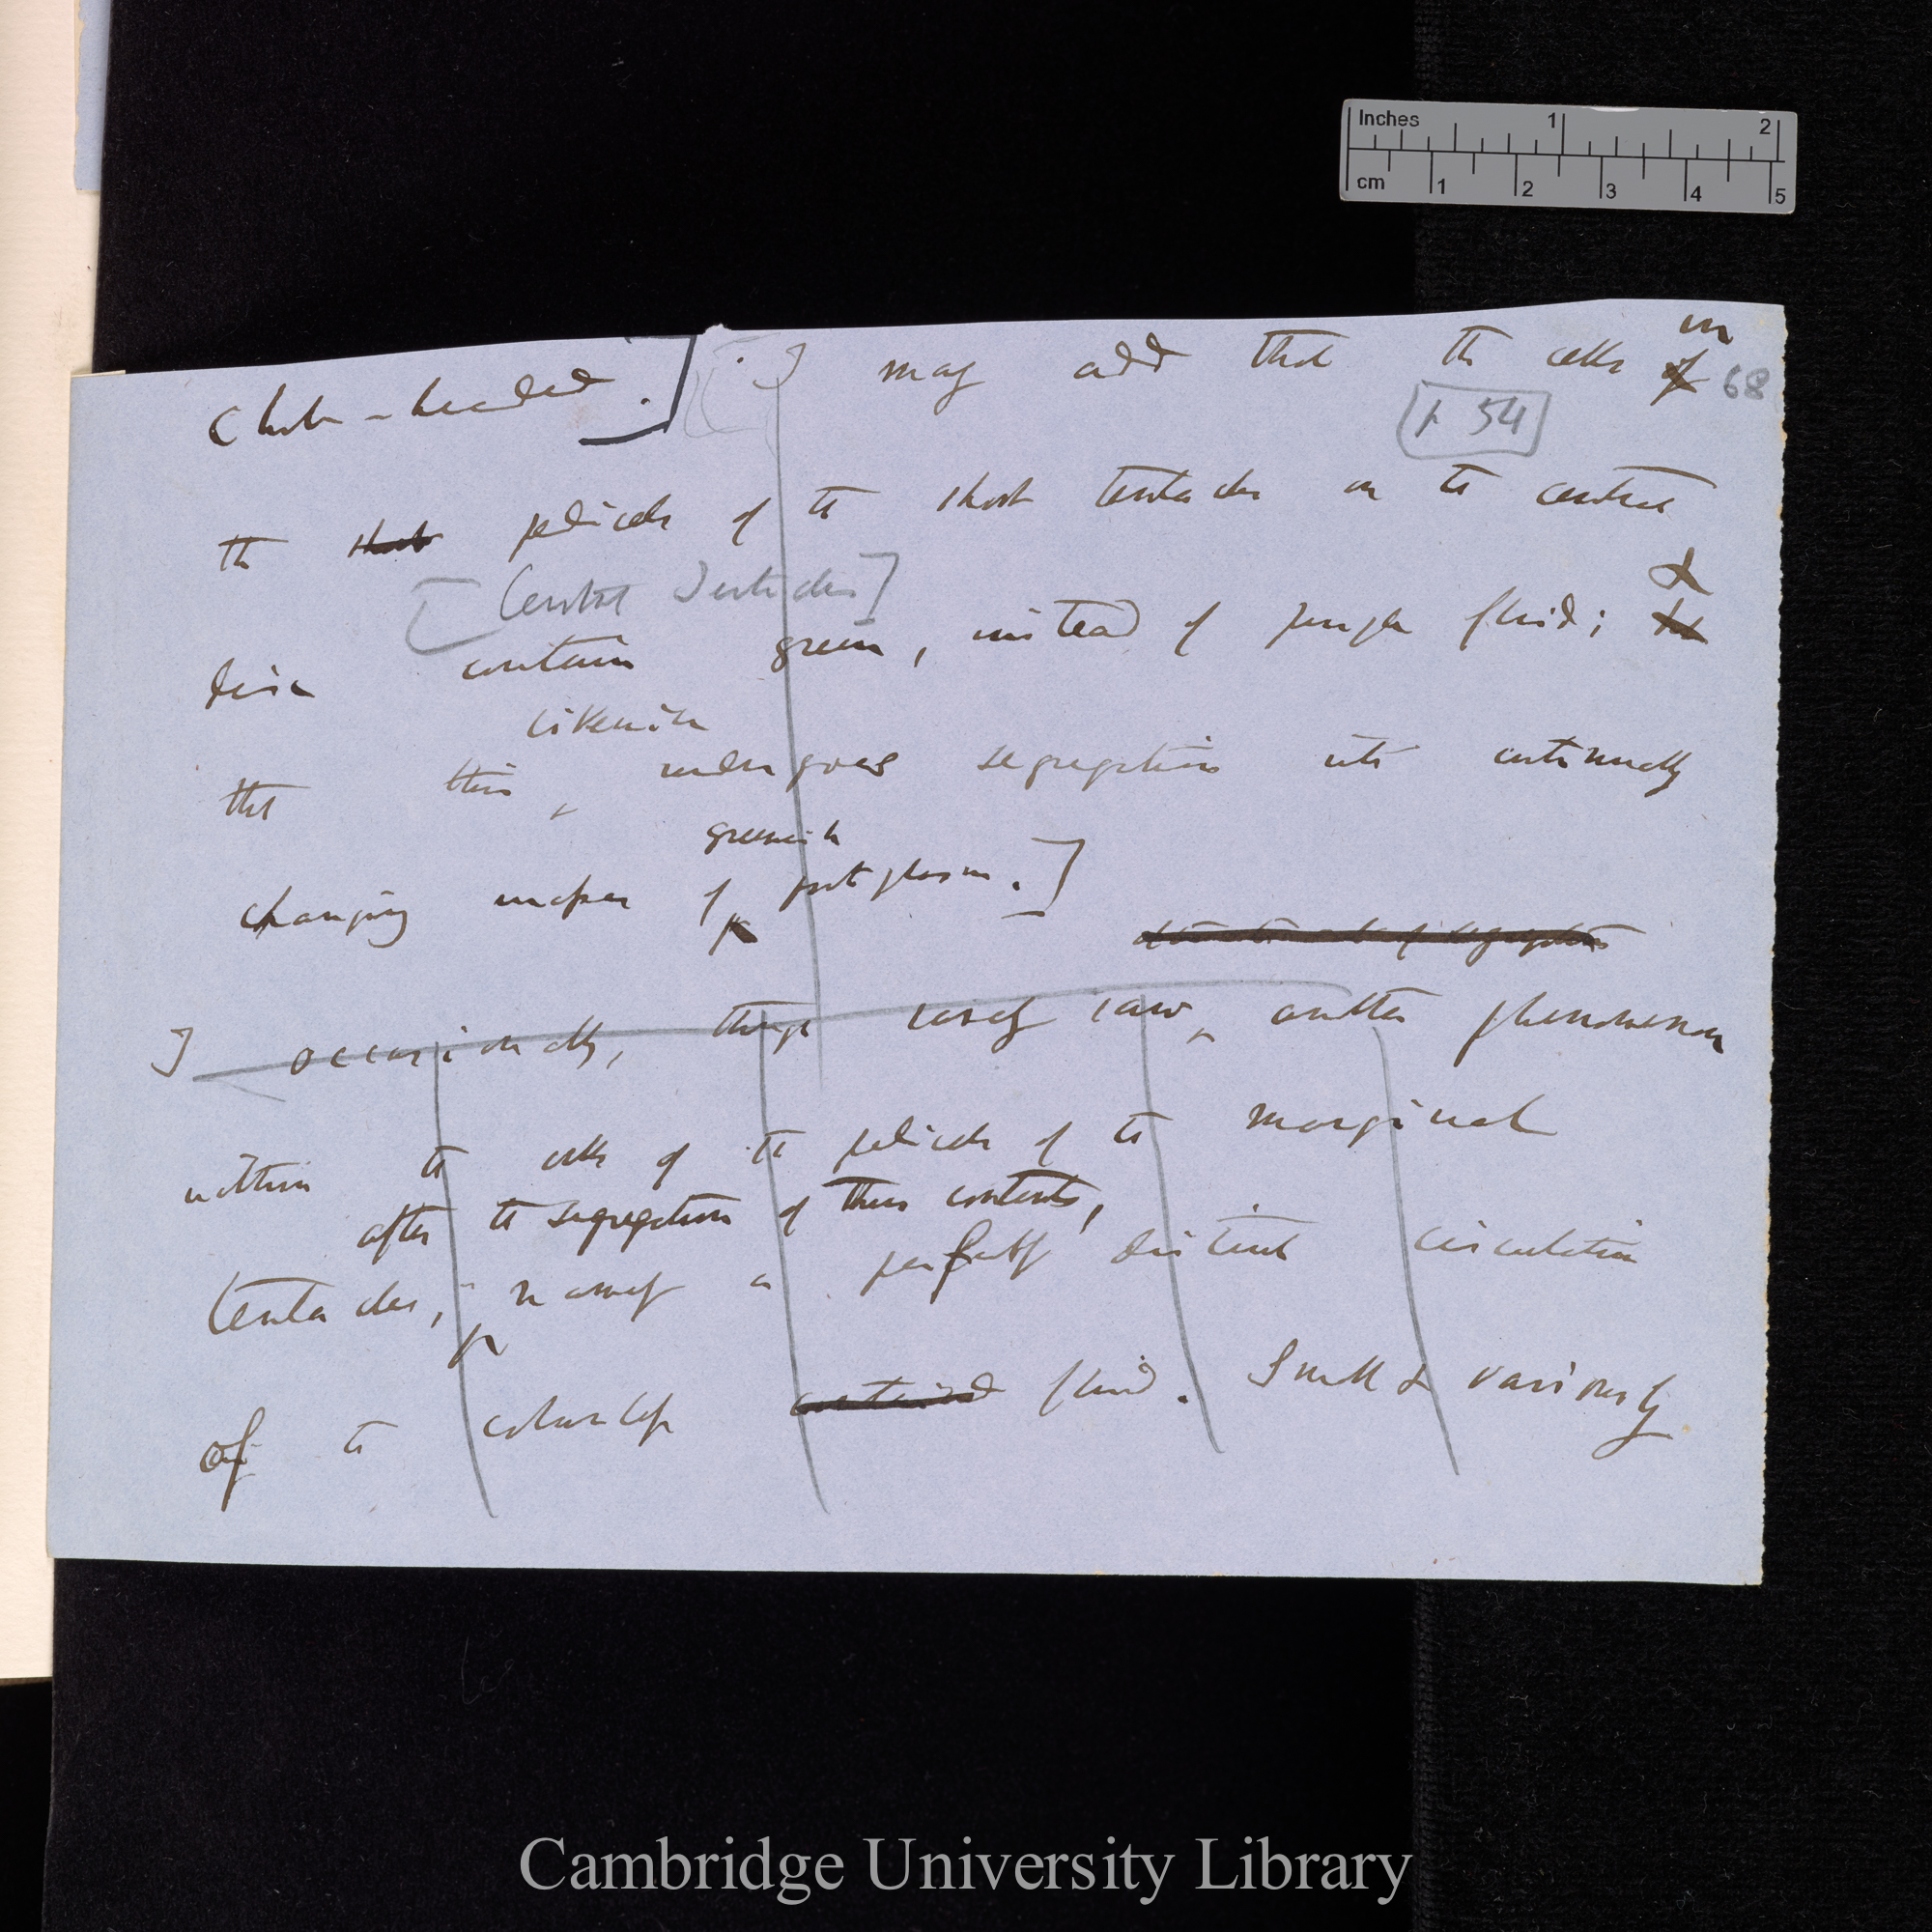 Inches 1 2
cm 1 2 3 4 5
in
club-headed.] . I may add that the cells of 68
p 54
the short pedicels of the short tentacles on the central
[Central Tentacles]
&
disc contain green, instead of purple fluid;
likewise
that this ^ undergoes segregation into continually
greenish
changing masses of protoplasm.]
I occasionally, though rarely saw ^ another phenomenon
within the cells of the pedicels of the marginal
after the segregation of their contents,
tentacles, namely a perfectly distinct circulation
of the colourless contained fluid. Small & variously
Cambridge University Library